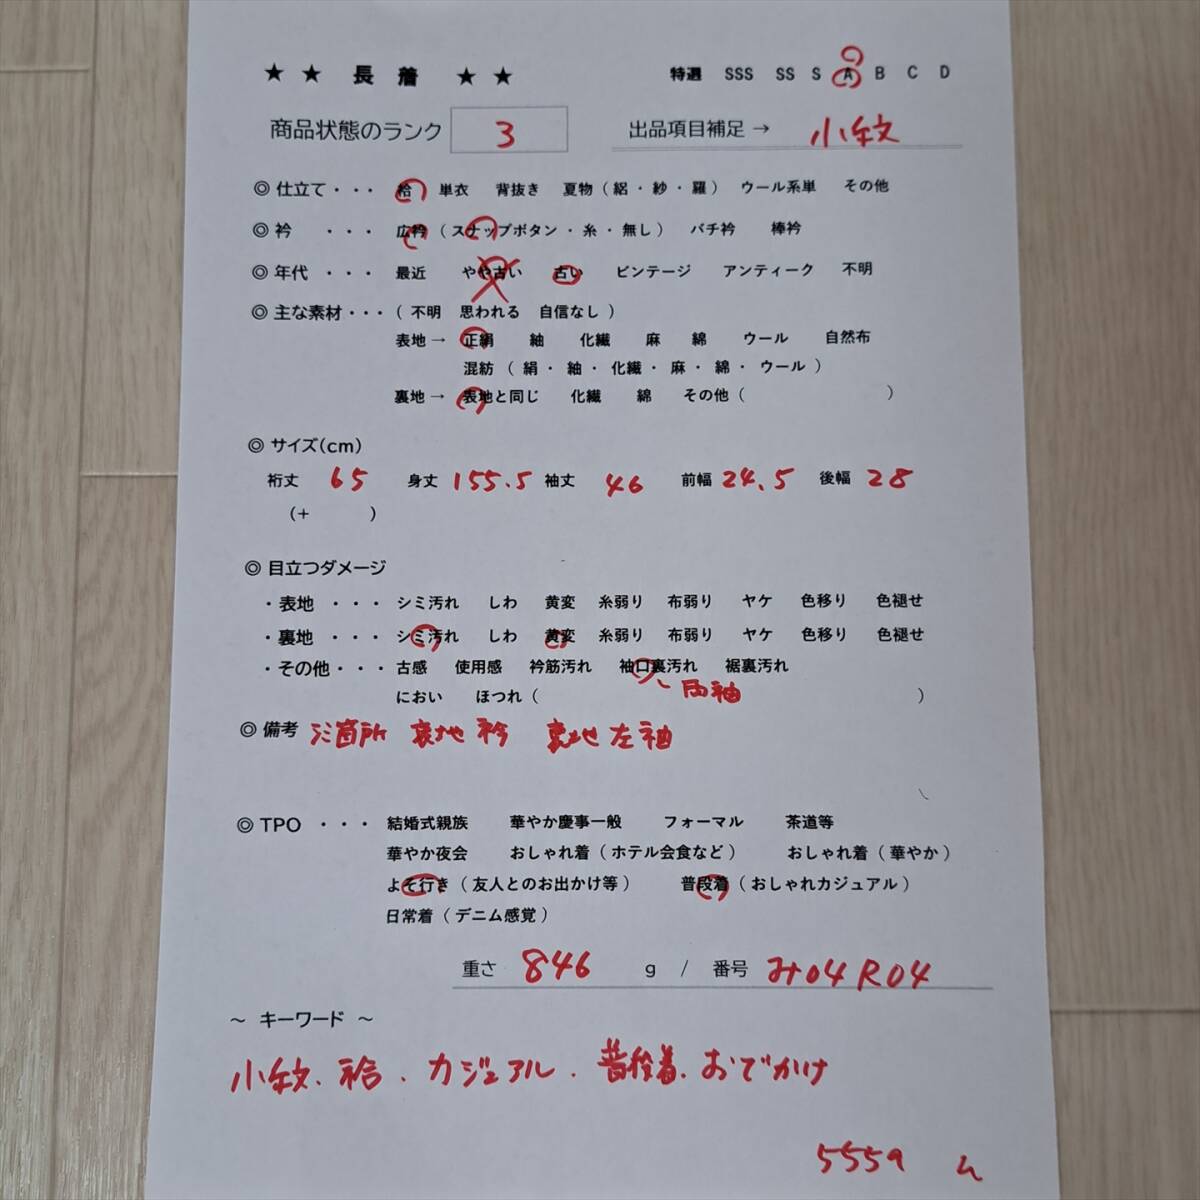 ★ ★ 長 着 ★ ★ 特選 SSS SS S A B C D
商品状態のランク 3 出品項目補足 → 小紋
◎ 仕立て・・・ 袷 単衣 背抜き 夏物（絽・紗・羅） ウール系単 その他
◎ 衿 ・・・ 広衿（スナップボタン・糸・無し） バチ衿 棒衿
◎ 年代 ・・・ 最近 やや古い 古い ビンテージ アンティーク 不明
◎ 主な素材・・・（ 不明 思われる 自信なし ）
表地→ 正絹 紬 化繊 麻 綿 ウール 自然布
混紡（ 絹・紬・化繊・麻・綿・ウール ）
裏地→ 表地と同じ 化繊 綿 その他（ ）
◎ サイズ(cm)
裄丈 65 身丈 155.5 袖丈 46 前幅 24.5 後幅 28
(+ )
◎ 目立つダメージ
・表地 ・・・ シミ汚れ しわ 黄変 糸弱り 布弱り ヤケ 色移り 色褪せ
・裏地 ・・・ シミ汚れ しわ 黄変 糸弱り 布弱り ヤケ 色移り 色褪せ
・その他・・・ 古感 使用感 衿筋汚れ 袖口裏汚れ 裾裏汚れ
両袖
におい ほつれ（ ）
◎ 備考 箇所 裏地 衿 裏地 左袖
◎ TPO ・・・ 結婚式親族 華やか慶事一般 フォーマル 茶道等
華やか夜会 おしゃれ着（ホテル会食など） おしゃれ着（華やか）
よそ行き（友人とのお出かけ等） 普段着（おしゃれカジュアル）
日常着（デニム感覚）
重さ 846 g / 番号 み04R04
～ キーワード ～
小紋．袷．カジュアル．普段着．おでかけ
5559 ん